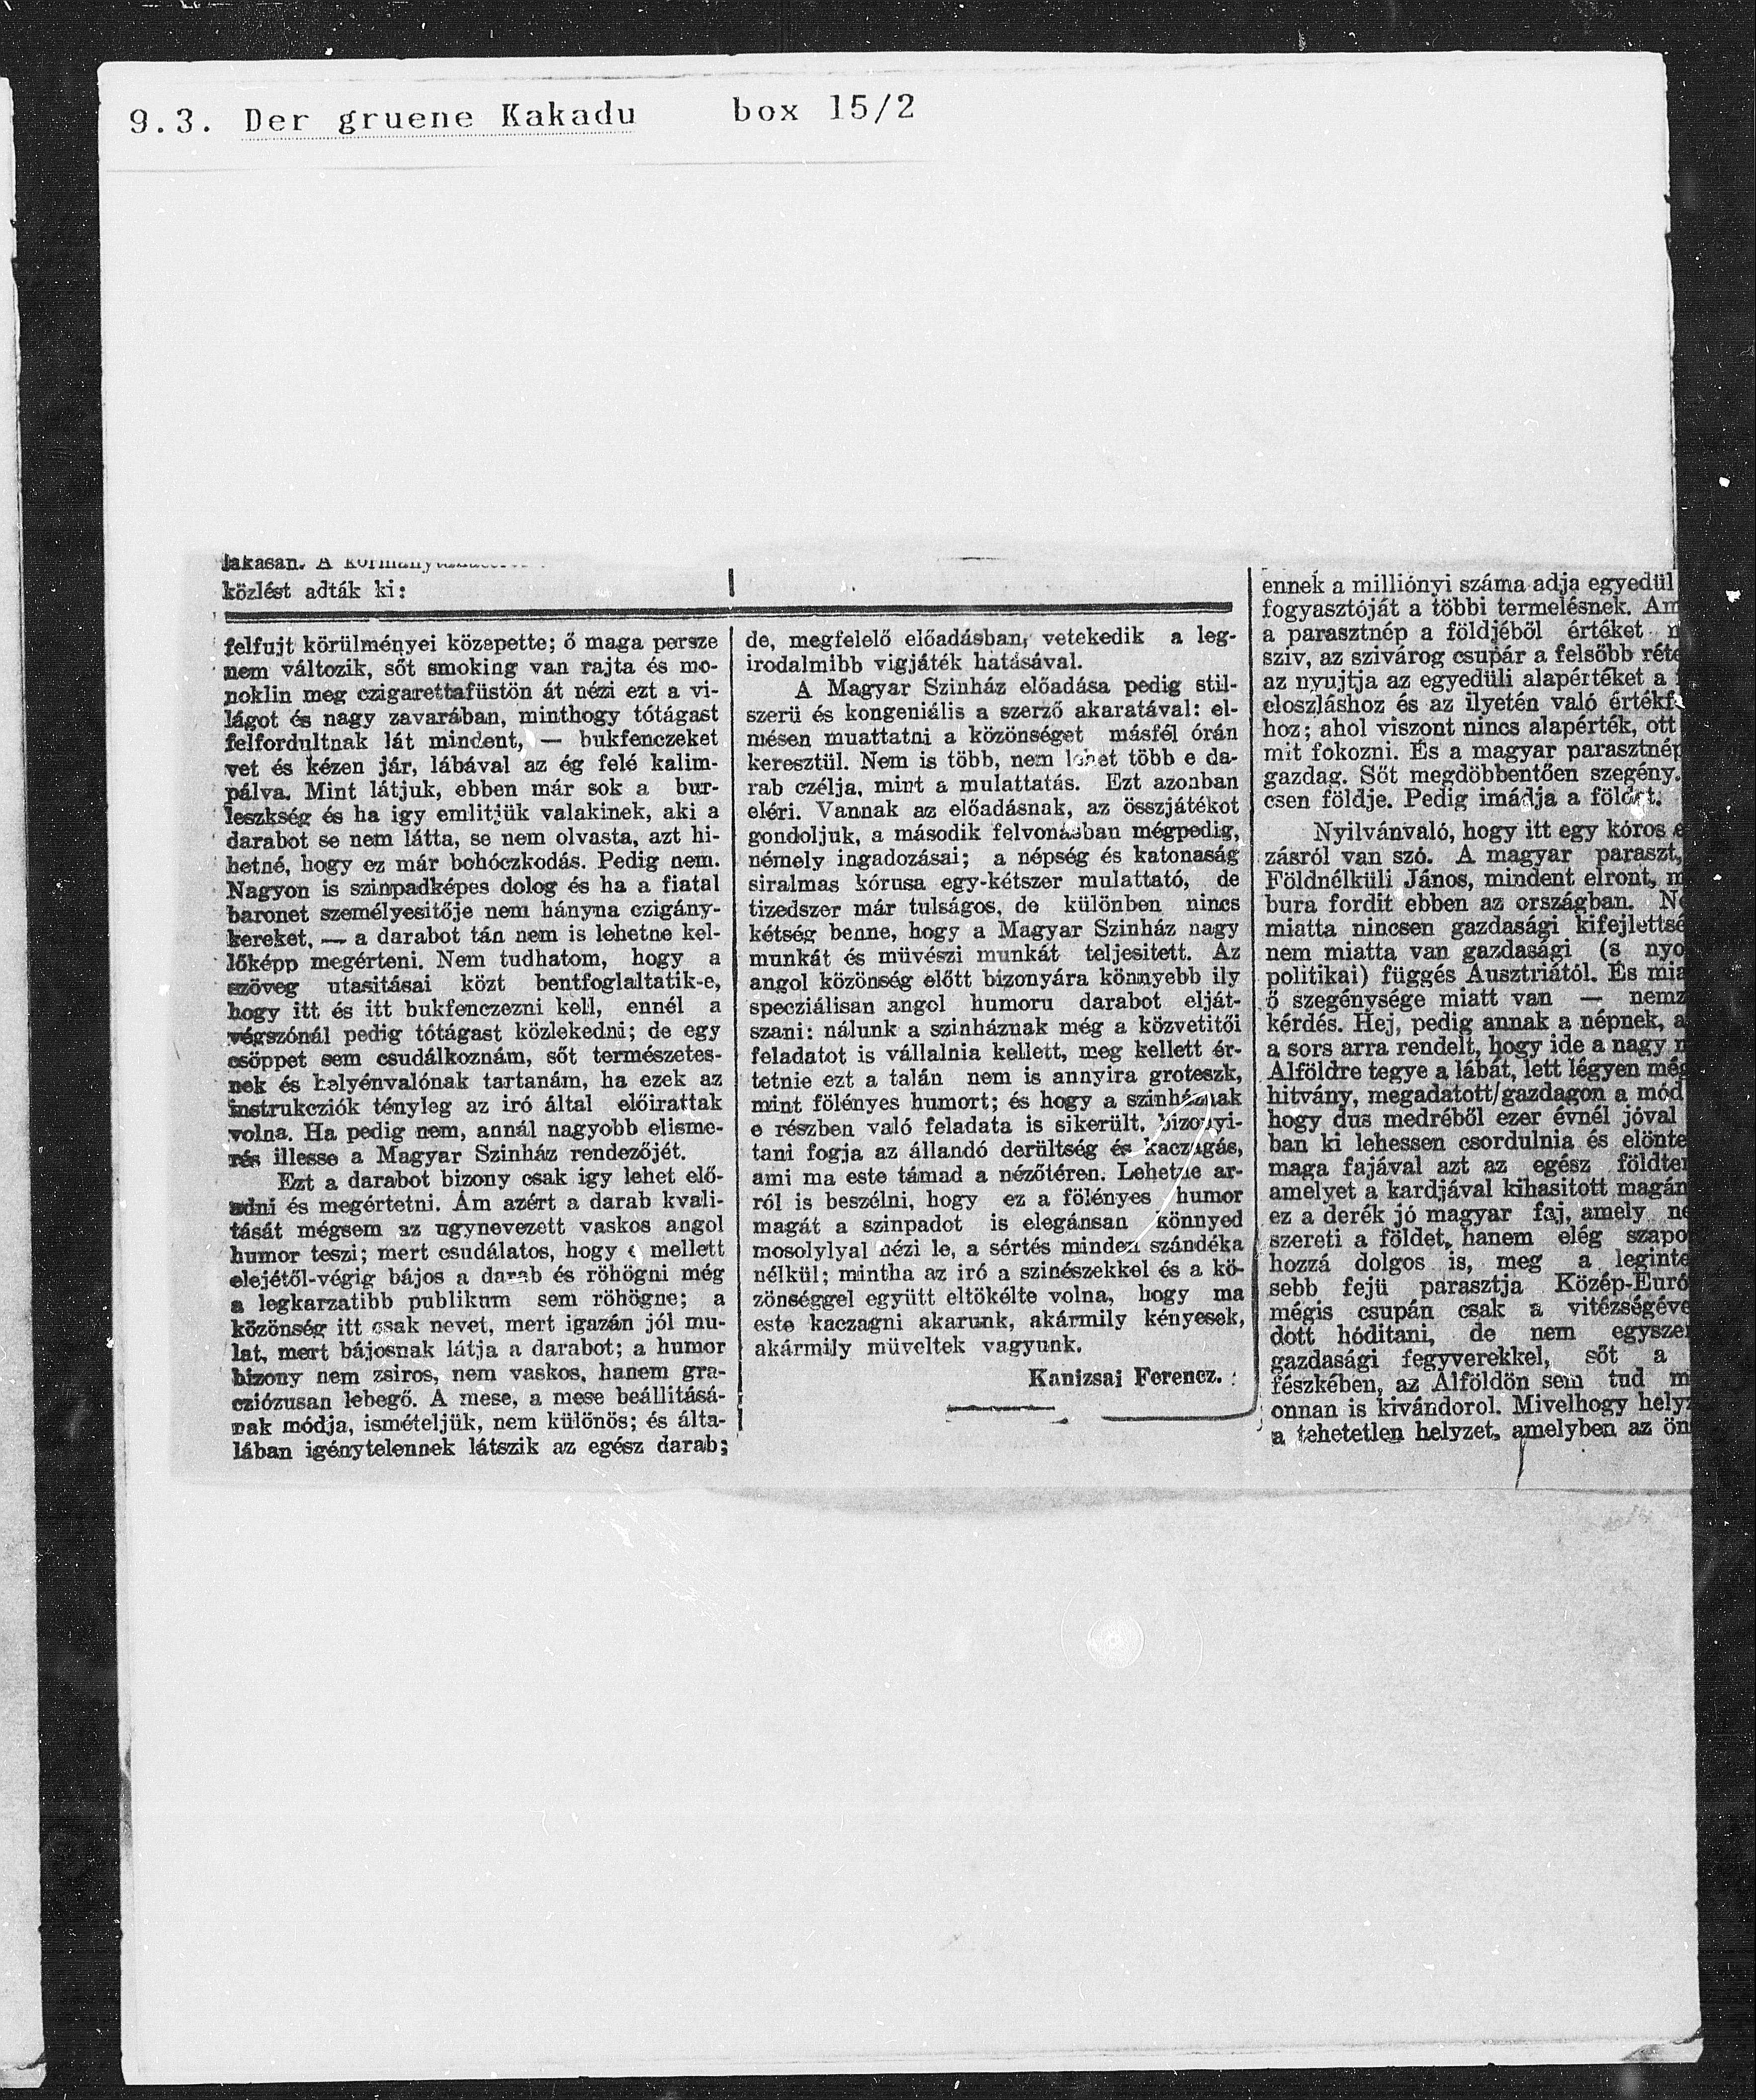 9.3. Der gruene Kakadu box 15/2
lakasan. A
közlést adták ki:
felfujt körülményei közepette; ő maga persze
nem változik, sőt smoking van rajta és mo-
noklin meg czigarettafüstön át nézi ezt a vi-
lágot és nagy zavarában, minthogy tótágast
felfordultnak lát mindent, — bukfenczeket
vet és kézen jár, lábával az ég felé kalim-
pálva. Mint látjuk, ebben már sok a bur-
leszkség és ha igy emlitjük valakinek, aki a
darabot se nem látta, se nem olvasta, azt hi-
hetné, hogy ez már bohóczkodás. Pedig nem.
Nagyon is szinpadképes dolog és ha a fiatal
baronet személyesitője nem hányna czigány-
kereket, — a darabot tán nem is lehetne kel-
lőképp megérteni. Nem tudhatom, hogy a
szöveg utasitásai közt bentfoglaltatik-e,
hogy itt és itt bukfenczezni kell, ennél a
végszónál pedig tótágast közlekedni; de egy
csöppet sem csudálkoznám, sőt természetes-
nek és helyénvalónak tartanám, ha ezek az
instrukcziók tényleg az iró által előirattak
volna. Ha pedig nem, annál nagyobb elisme-
rés illesse a Magyar Szinház rendezőjét.
Ezt a darabot bizony csak igy lehet elő-
adni és megértetni. Ám azért a darab kvali-
tását mégsem az ugynevezett vaskos angol
humor teszi; mert csudálatos, hogy e mellett
elejétől-végig bájos a darab és röhögni még
a legkarzatibb publikum sem röhögne; a
közönség itt csak nevet, mert igazán jól mu-
lat, mert bájosnak látja a darabot; a humor
bizony nem zsiros, nem vaskos, hanem gra-
cziózusan lebegő. A mese, a mese beállitásá-
nak módja, ismételjük, nem különös; és álta-
lában igénytelennek látszik az egész darab;
de, megfelelő előadásban, vetekedik a leg-
irodalmibb vigjáték hatásával.
A Magyar Szinház előadása pedig stil-
szerü és kongeniális a szerző akaratával: el-
mésen muattatni a közönséget másfél órán
keresztül. Nem is több, nem lehet több e da-
rab czélja, mint a mulattatás. Ezt azonban
eléri. Vannak az előadásnak, az összjátékot
gondoljuk, a második felvonásban mégpedig,
némely ingadozásai; a népség és katonaság
siralmas kórusa egy-kétszer mulattató, de
tizedszer már tulságos, de különben nincs
kétség benne, hogy a Magyar Szinház nagy
munkát és müvészi munkát teljesitett. Az
angol közönség előtt bizonyára könnyebb ily
specziálisan angol humoru darabot elját-
szani: nálunk a szinháznak még a közvetitői
feladatot is vállalnia kellett, meg kellett ér-
tetnie ezt a talán nem is annyira groteszk,
mint fölényes humort; és hogy a szinháznak
e részben való feladata is sikerült, bizonyi-
tani fogja az állandó derültség és kaczagás,
ami ma este támad a nézőtéren. Lehetne ar-
ról is beszélni, hogy ez a fölényes humor
magát a szinpadot is elegánsan könnyed
mosolylyal nézi le, a sértés minden szándéka
nélkül; mintha az iró a szinészekkel és a kö-
zönséggel együtt eltökélte volna, hogy ma
este kaczagni akarunk, akármily kényesek,
akármily müveltek vagyunk.
Kanizsai Ferencz.
ennek a milliónyi száma adja egyedül
fogyasztóját a többi termelésnek. Am
a parasztnép a földjéből értéket
sziv, az szivárog csupár a felsőbb réte
az nyujtja az egyedüli alapértéket a
eloszláshoz és az ilyetén való értékf
hoz; ahol viszont nincs alapérték, ott
mit fokozni. És a magyar parasztnép
gazdag. Sőt megdöbbentően szegény.
csen földje. Pedig imádja a földet.
Nyilvánvaló, hogy itt egy kóros e
zásról van szó. A magyar paraszt,
Földnélküli János, mindent elront, m
bura fordit ebben az országban. N
miatta nincsen gazdasági kifejlettsé
nem miatta van gazdasági (s nyo
politikai) függés Ausztriától. És mia
ő szegénysége miatt van — nemz
kérdés. Hej, pedig annak a népnek, a
a sors arra rendelt, hogy ide a nagy
Alföldre tegye a lábát, lett légyen még
hitvány, megadatott gazdagon a mód
hogy dus medréből ezer évnél jóval
ban ki lehessen csordulnia és elönte
maga fajával azt az egész földter
amelyet a kardjával kihasitott magán
ez a derék jó magyar faj, amely ne
szereti a földet, hanem elég szapo
hozzá dolgos is, meg a leginte
sebb fejü parasztja Közép-Euró
mégis csupán csak a vitézségéve
dott hóditani, de nem egyszer
gazdasági fegyverekkel, sőt a
fészkében, az Alföldön sem tud m
onnan is kivándorol. Mivelhogy hely
a tehetetlen helyzet, amelyben az ön